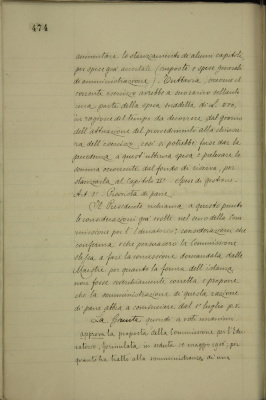 474
aumentare lo stanziamento di alcuni capitoli
per spese già accertate (imposte e spese generali
di amministrazione). Tuttavia, siccome il
corrente esercizio avrebbe a soccorrere soltanto
una parte della spesa suddetta di L.
in ragione del tempo da decorrere dal giorno
dell'attuazione del provvedimento alla chiusura
dell'esercizio, così si potrebbe fare
a quest'ultima spesa e prelevare la
somma occorrente dal fondo di riserva, per
stanziarla al Capitolo
Art. 2° Provvista di pane.
Il Presidente richiama a questo punto
le considerazioni già svolte nel seno della Com
missione per l' considerazioni che
conferma, e che persuasero la Commissione
stessa a fare la concessione domandata dalle
per quanto la forma dell'istanza
non fosse evidentemente corretta, e propone
che la somministrazione di questa razione
di pane abbia a cominciare dal 1° luglio p.v.
La Giunta quindi a voti unanimi
approva la proposta della Commissione per l'
formulata in seduta 10 maggio 1906, per
quanto ha tratto alla somministrazione di una